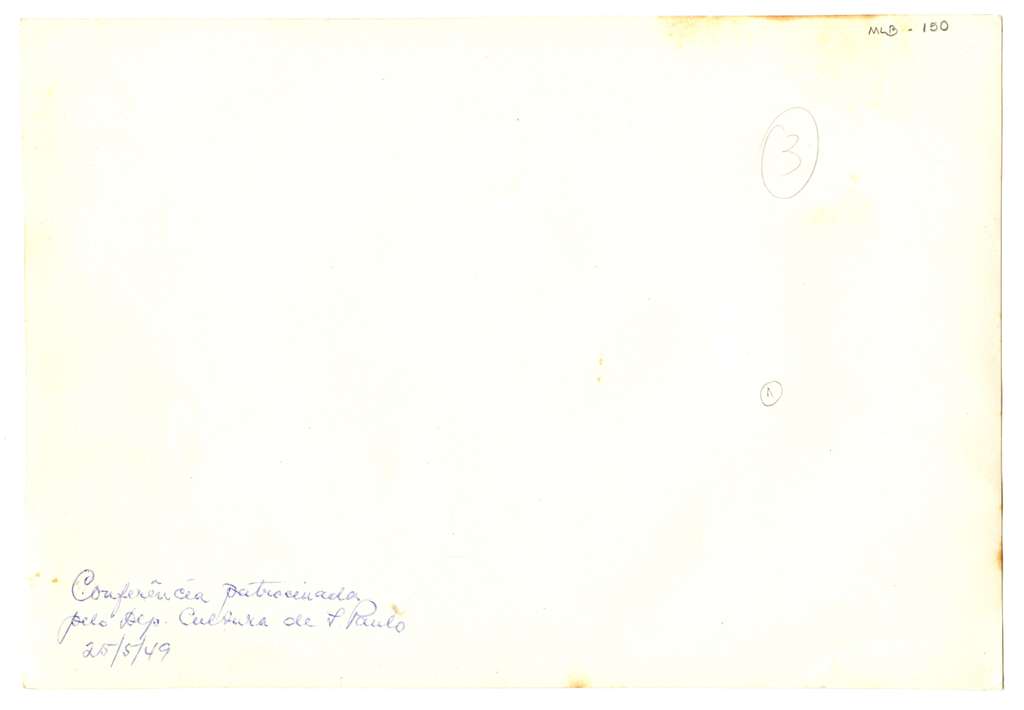 MLB - 150
3
1
Conferência patrocinada
pelo Dep. Cultura de S Paulo
25/5/49